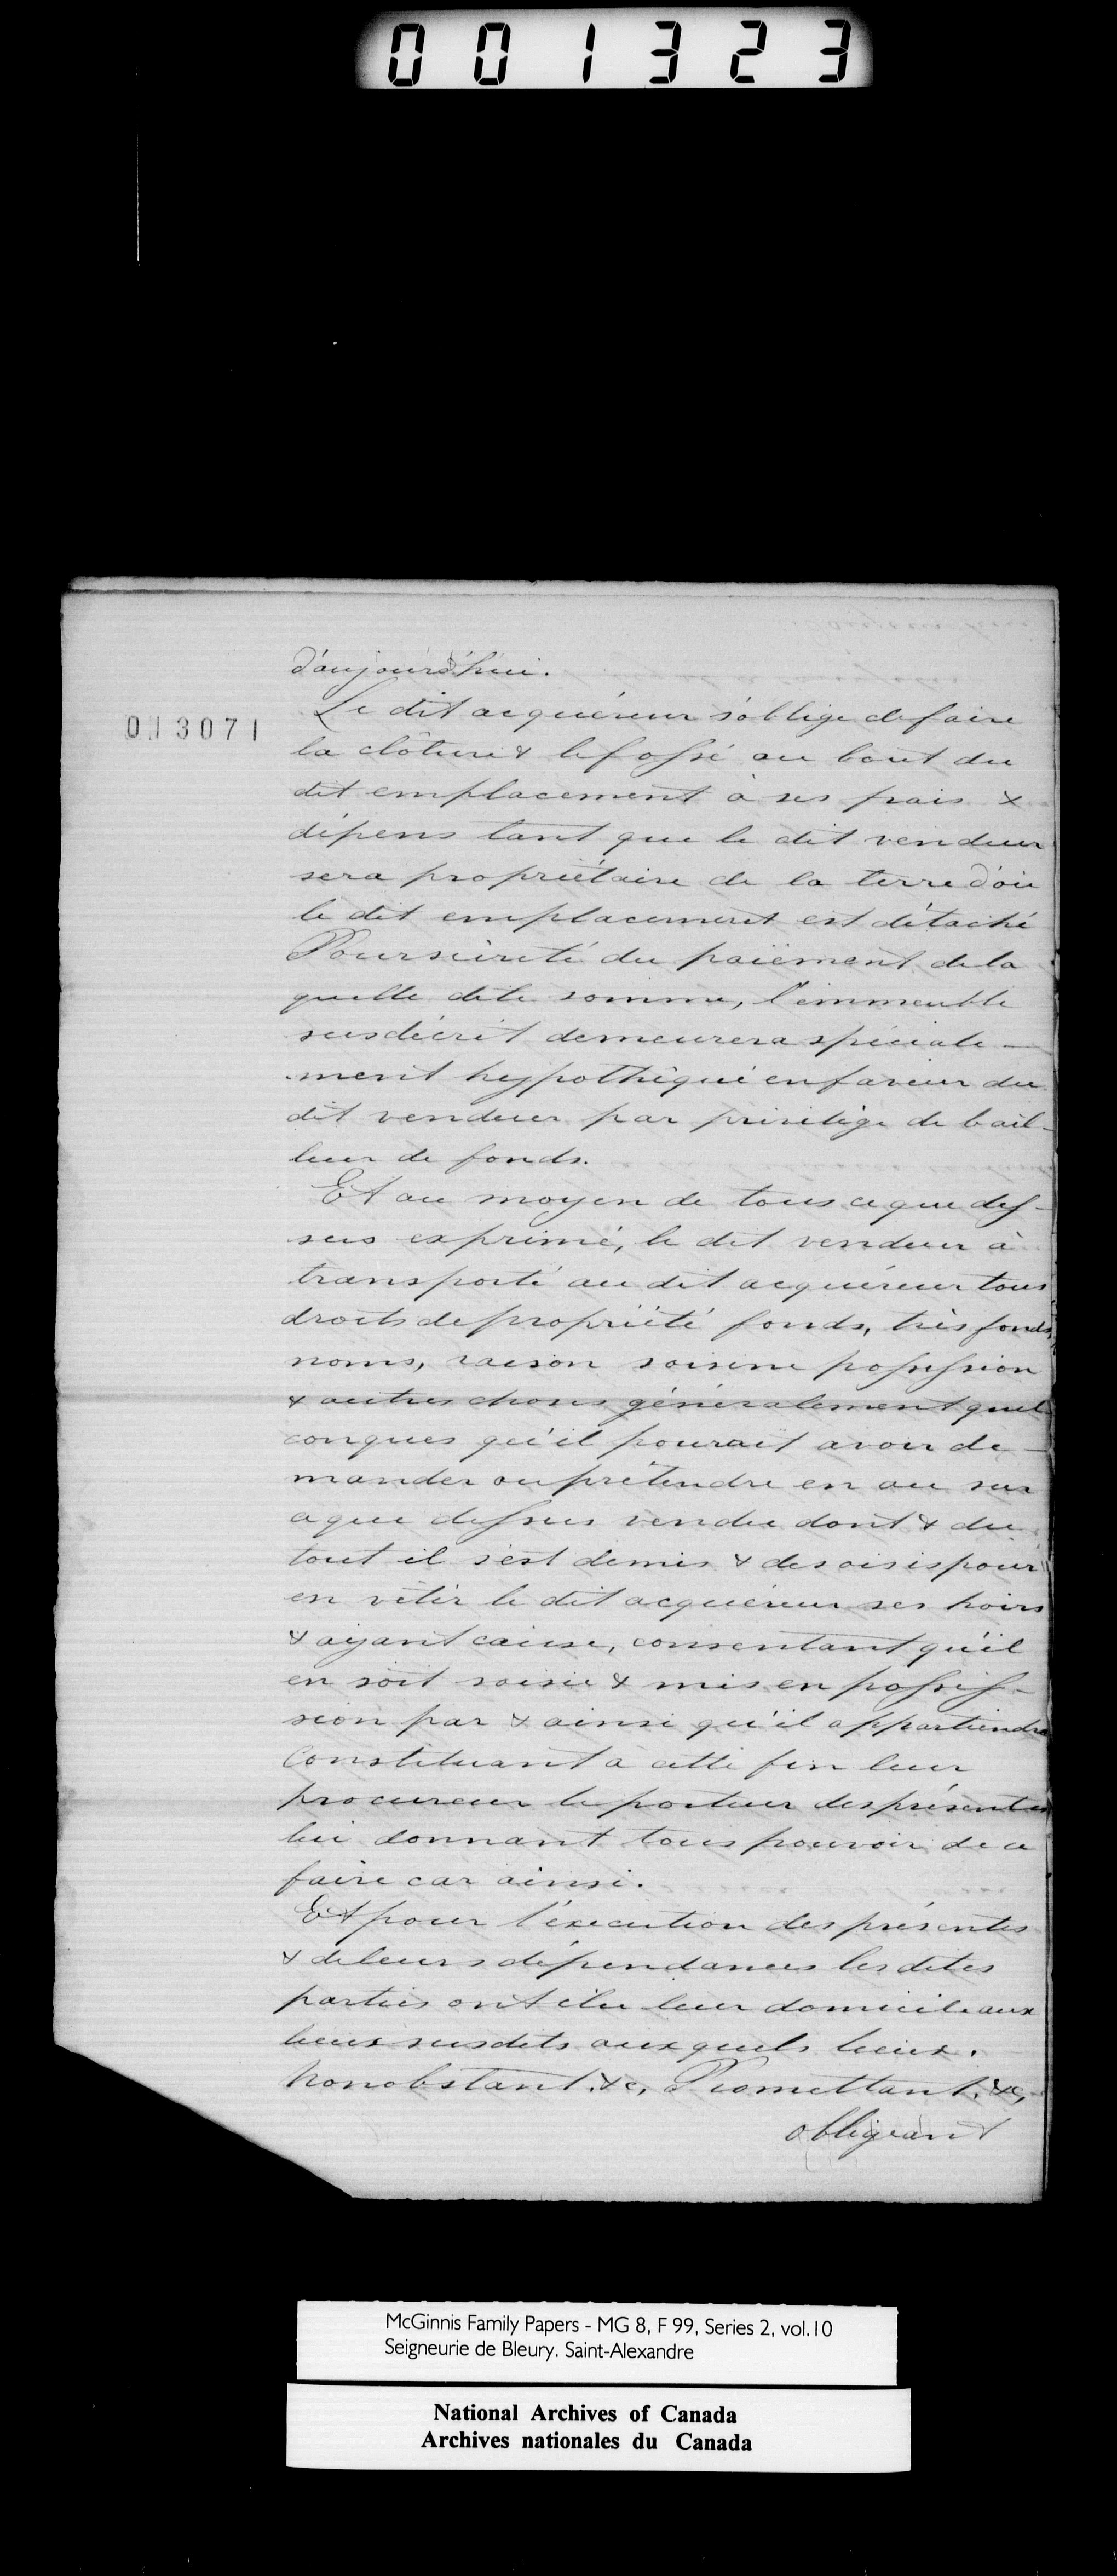 001323
d'aujourd'hui.
Le dit acquéreur s'oblige de faire
013071
la clôture & le fossé au bout du
dit emplacement à ses frais &
dépens tant que le dit vendeur
sera propriétaire de la terre d'où
le dit emplacement est détaché
Pour sûreté du paiement de la
quelle dite somme, l'immeuble
susdécrit demeurera spéciale-
ment hypothéqué en faveur du
dit vendeur par privilège de bail-
leur de fonds.
Et au moyen de tous ce que des-
sus exprimé, le dit vendeur à
transporté au dit acquéreur tous
droits de propriété fonds, très fonds,
noms, raison saisine possession
& autres choses généralement quel-
conques qu'il pourait avoir de-
mander ou prétendre en ou sur
ce que dessus vendu dont & du
tout il s'est demis & desaisis pour
en vêtir le dit acquéreur ses hoirs
& ayant cause, consentant qu'il
en soit saisie & mis en posses-
sion par & ainsi qu'il appartiendra
Constituant à cette fin leur
procureur le porteur des présentes
lui donnant tous pouvoir de ce
faire car ainsi.
Et pour l'éxecution des présentes
& de leurs dépendances les dites
parties ont élu leur domicile aux
lieux susdits auxquels lieux.
Nonobstant. &c, Promettant. &c,
obligeant
McGinnis Family Papers - MG 8, F 99, Series 2, vol.10
Seigneurie de Bleury. Saint-Alexandre
National Archives of Canada
Archives nationales du Canada